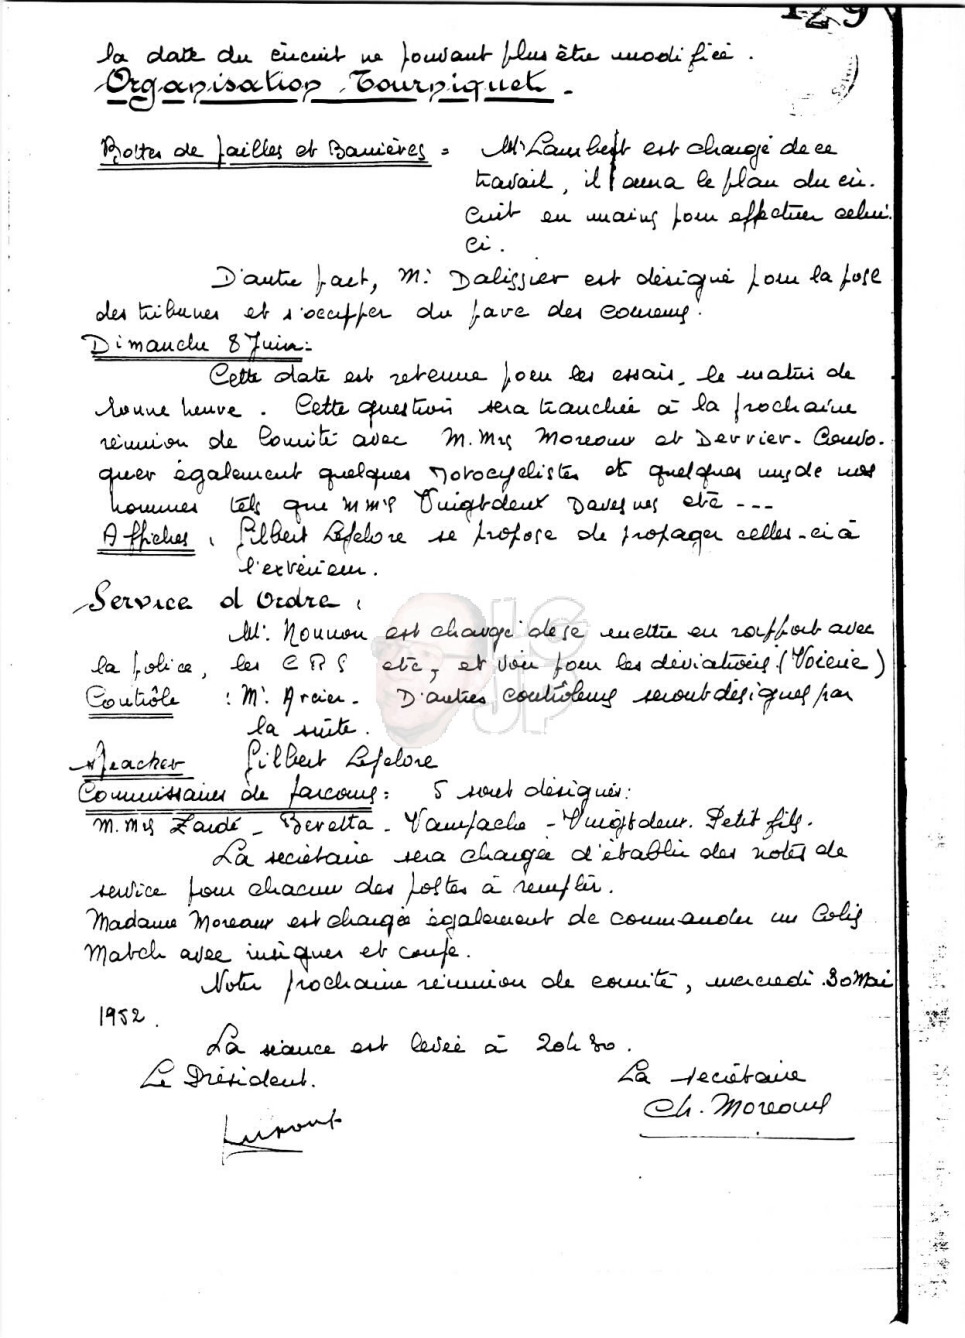 129
la date du circuit ne pouvant plus être modifiée.
Organisation Tourniquet.
Bottes de pailles et Barrières = Mr Lambert est chargé de ce
travail, il aura le plan du cir.
cuit en mains pour effectuer celui
ci.
D'autre part, Mr Dalissier est désigné pour la pose
des tribunes et s'occuper du parc des coureurs.
Dimanche 8 Juin:
Cette date est retenue pour les essais, le matin de
bonne heure. Cette question sera tranchée à la prochaine
réunion de Comité avec M.Mrs Moreaux et Dervier. Convo.
quer également quelques motocyclistes et quelques uns de nos
hommes tels que MMrs Vuigtdeux Davesnes etc ---
Affiches : Gilbert Lefelore se propose de propager celles-ci à
l'extérieur.
Service d'Ordre :
Mr. Nounon est chargé de se mettre en rapport avec
la police, les CRS etc, et voir pour les déviations (Voierie)
Contrôle : Mr Arcier. D'autres contrôleurs seront désignés par
la suite.
Speacker Gilbert Lefelore
Commissaires de parcours: 5 sont désignés:
M.Mrs Zardé - Beretta - Vampache - Vuigtdeux. Petit fils.
La secrétaire sera chargée d'établir des notes de
service pour chacun des postes à remplir.
Madame Moreaux est chargée également de commander un Colis
Match avec insignes et coupe.
Notre prochaine réunion de comité, mercredi 30 Mai
1952.
La séance est levée à 20h30.
Le Président. La secrétaire
Ch. Moreaux